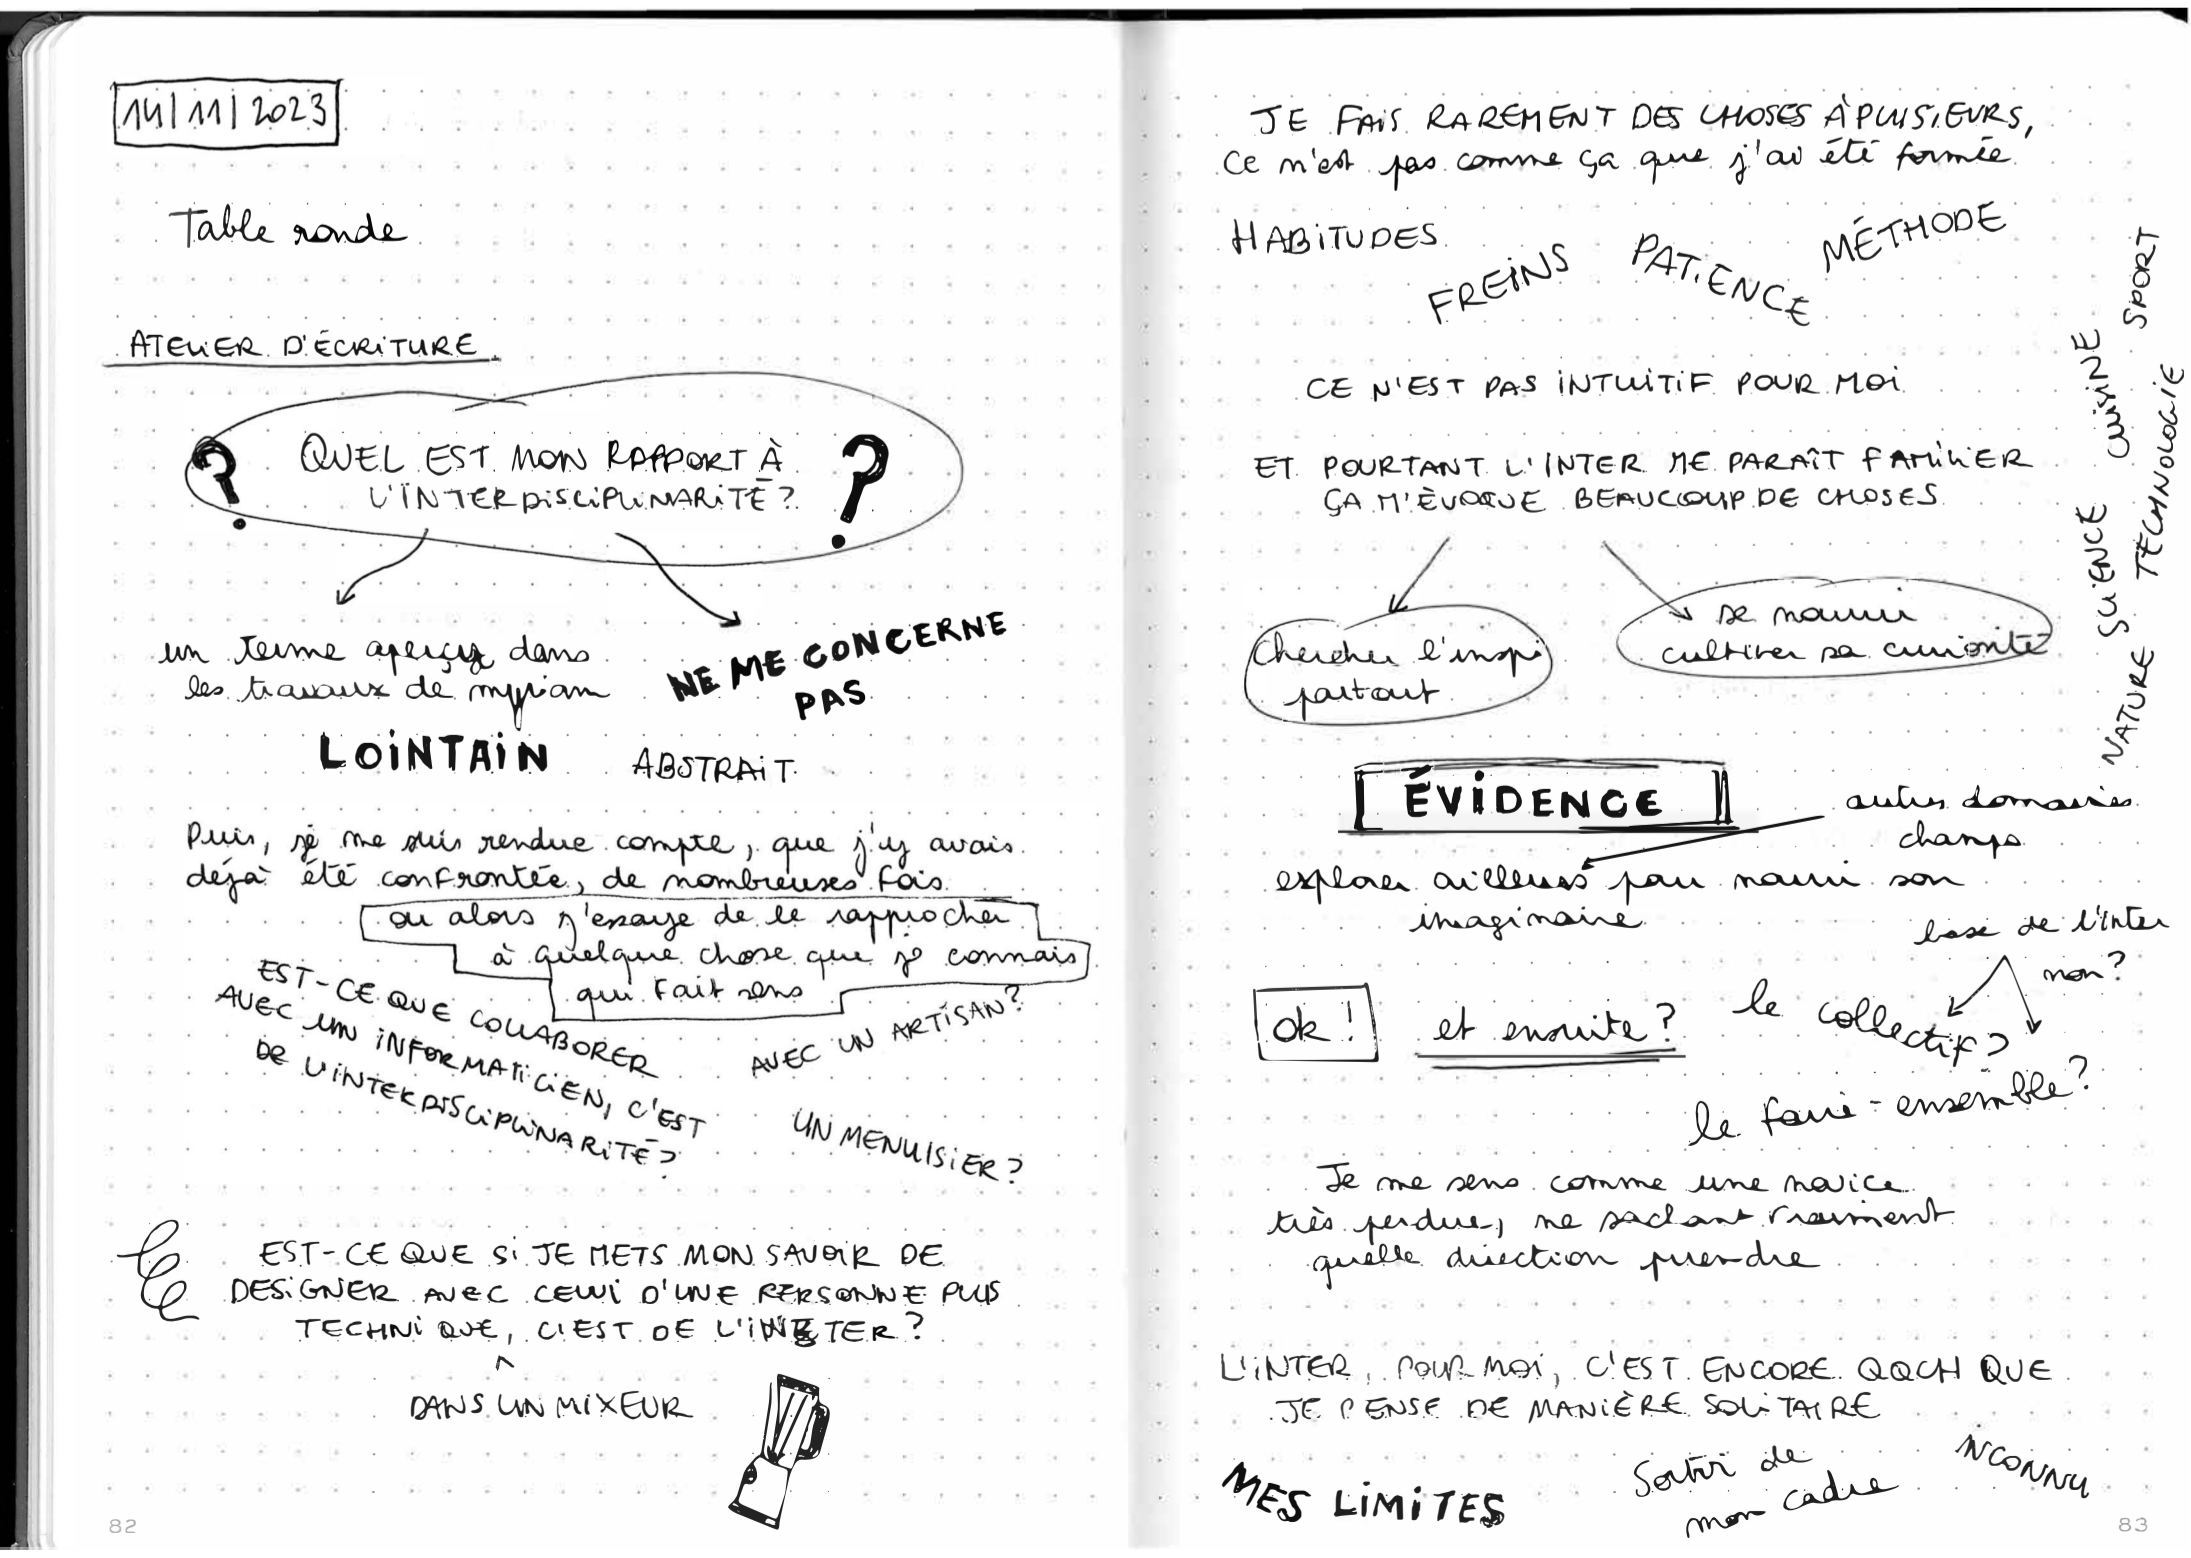 14/11/2023
Table ronde
ATELIER D'ÉCRITURE
? QUEL EST MON RAPPORT À ?
L'INTERDISCIPLINARITÉ ?
un terme aperçu dans
les travaux de myriam
NE ME CONCERNE
PAS
LOINTAIN
ABSTRAIT
Puis, je me suis rendue compte, que j'y avais
déjà été confrontée, de nombreuses fois
ou alors j'essaye de le rapprocher
à quelque chose que je connais
qui fait sens
EST-CE QUE COLLABORER
AVEC UN INFORMATICIEN, C'EST
DE L'INTERDISCIPLINARITÉ ?
AVEC UN ARTISAN ?
UN MENUISIER ?
EST-CE QUE SI JE METS MON SAVOIR DE
DESIGNER AVEC CELUI D'UNE PERSONNE PLUS
TECHNIQUE, C'EST DE L'INTER ?
^
DANS UN MIXEUR
82
JE FAIS RAREMENT DES CHOSES À PLUSIEURS,
Ce n'est pas comme ça que j'ai été formée
HABITUDES
FREINS
PATIENCE
MÉTHODE
CE N'EST PAS INTUITIF POUR MOI
ET POURTANT L'INTER ME PARAÎT FAMILIER
ÇA M'ÉVOQUE BEAUCOUP DE CHOSES
Chercher l'inspi
partout
se nourrir
cultiver sa curiosité
NATURE SCIENCE CUISINE
TECHNOLOGIE SPORT
ÉVIDENCE
autres domaines
champs
explorer ailleurs pour nourrir son
imaginaire
base de l'inter
non ?
ok !
et ensuite ?
le collectif ?
le faire-ensemble ?
Je me sens comme une novice
très perdue, ne sachant vraiment
quelle direction prendre
L'INTER, POUR MOI, C'EST ENCORE QQCH QUE
JE PENSE DE MANIÈRE SOLITAIRE
MES LIMITES
Sortir de
mon cadre
INCONNU
83